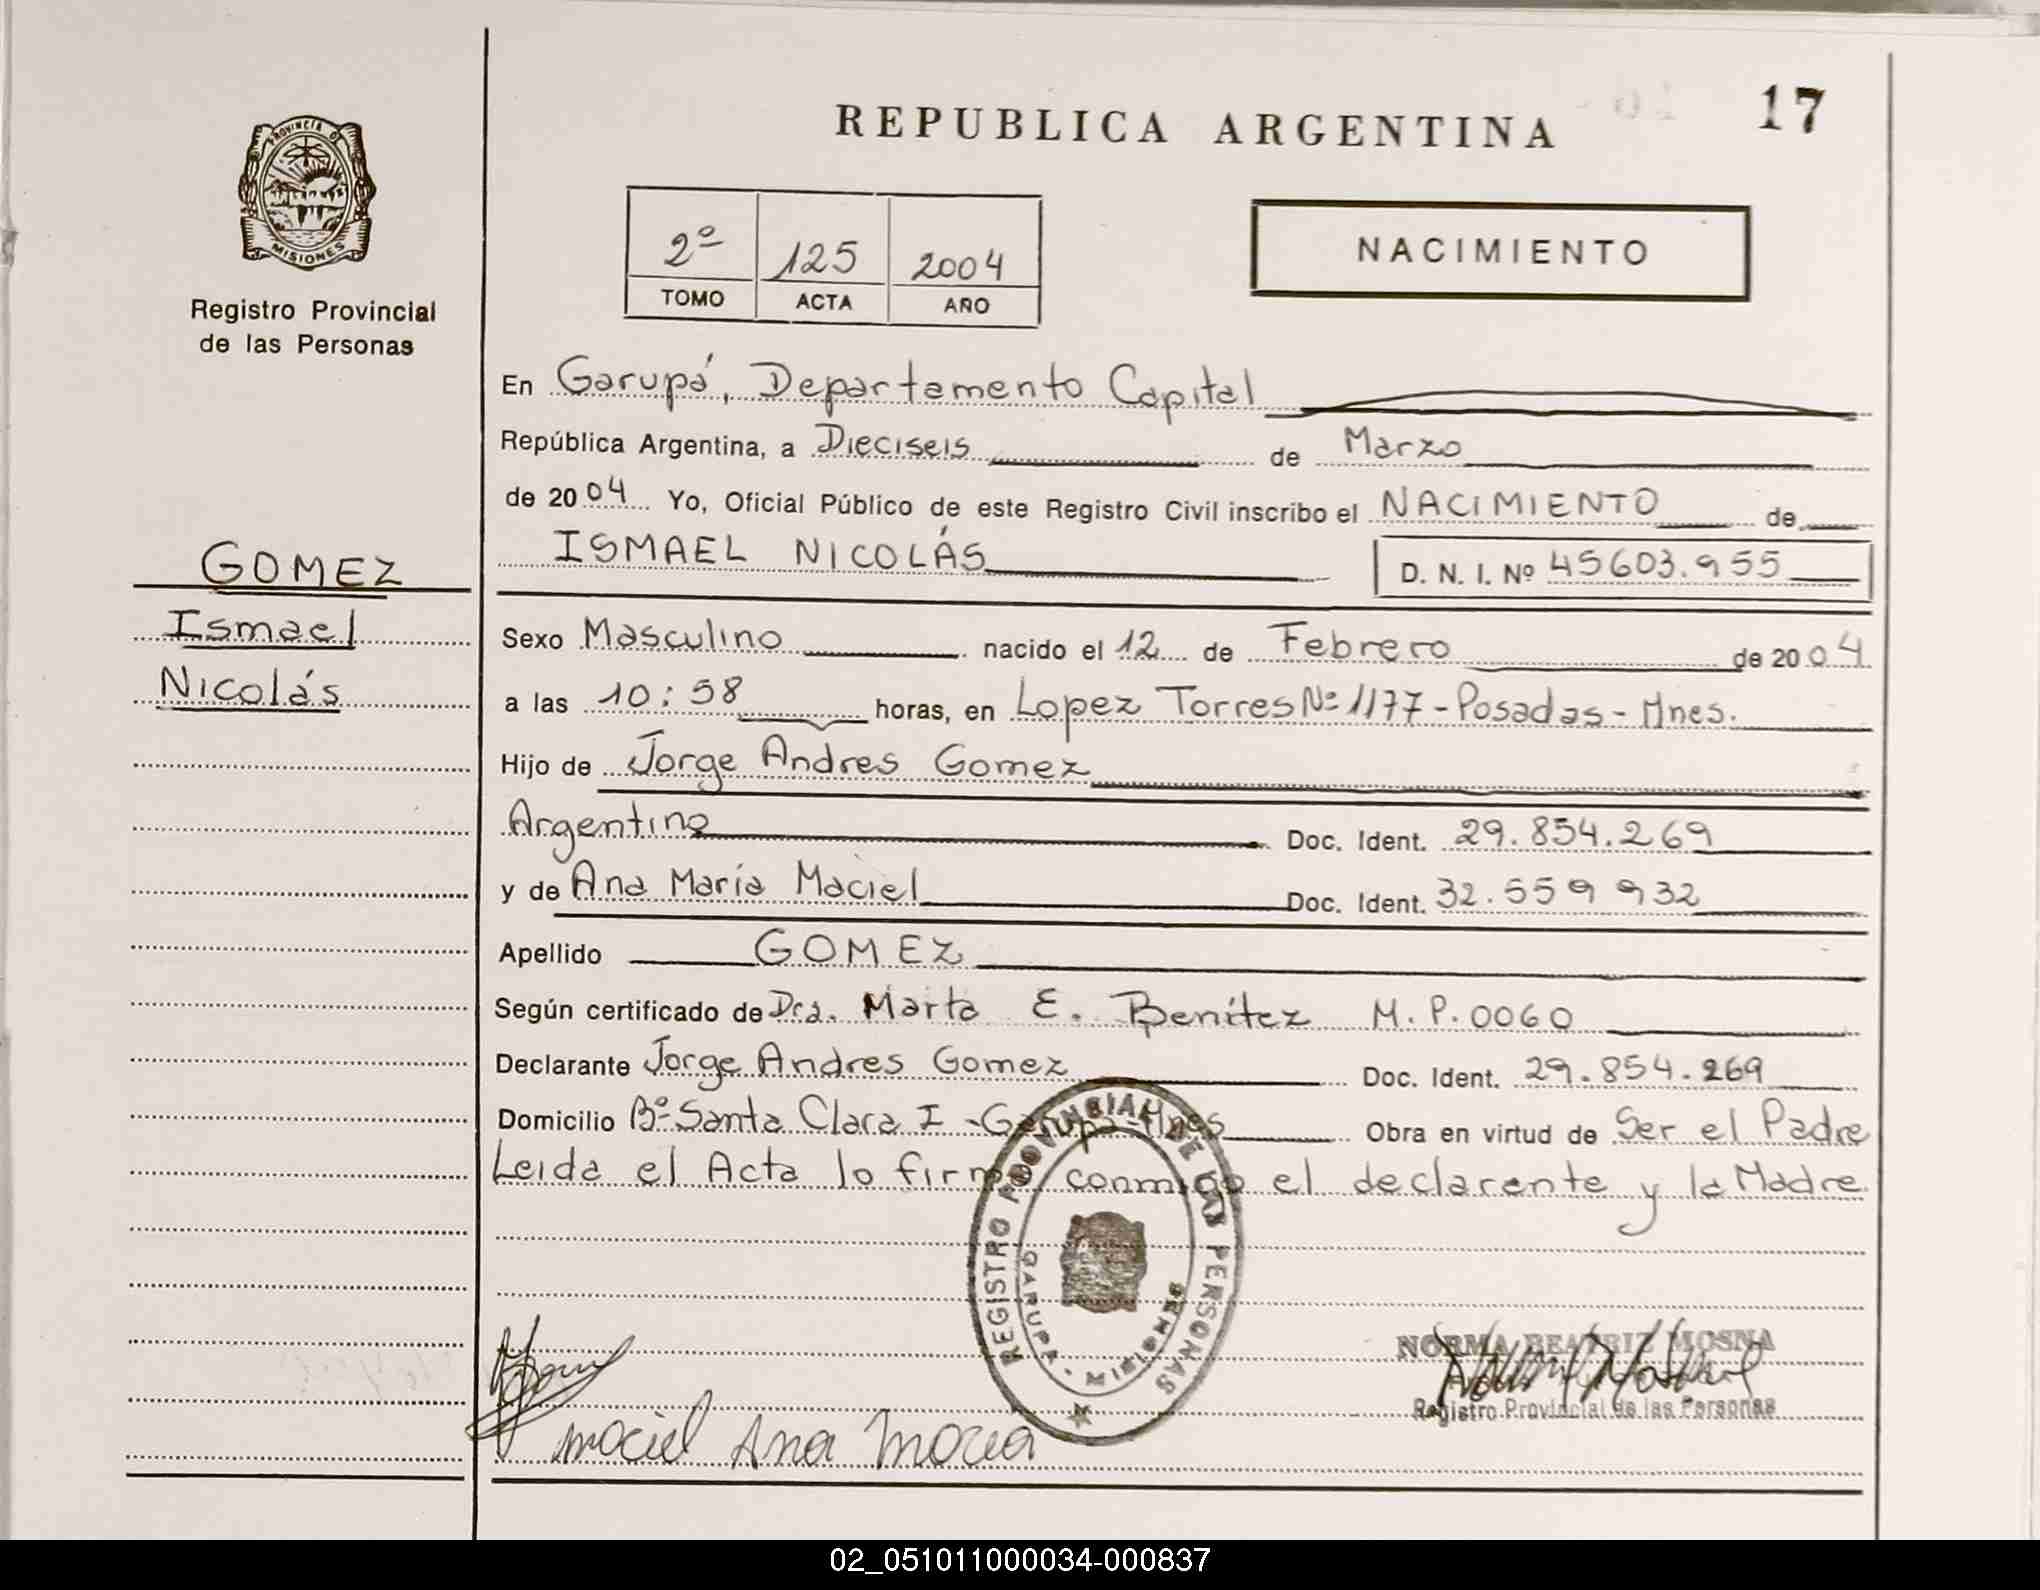 REPUBLICA ARGENTINA
17
PROVINCIA DE
MISIONES
Registro Provincial
de las Personas
2º 125 2004
TOMO ACTA AÑO
NACIMIENTO
En Garupá, Departamento Capital
República Argentina, a Dieciseis de Marzo
de 2004 Yo, Oficial Público de este Registro Civil inscribo el NACIMIENTO de
ISMAEL NICOLÁS D. N. I. Nº 45603.955
GOMEZ
Ismael
Nicolás
Sexo Masculino nacido el 12 de Febrero de 2004
a las 10:58 horas, en Lopez Torres Nº 1177 - Posadas - Mnes.
Hijo de Jorge Andres Gomez
Argentino Doc. Ident. 29.854.269
y de Ana María Maciel Doc. Ident. 32.559 932
Apellido GOMEZ
Según certificado de Dra. Marta E. Benítez M.P.0060
Declarante Jorge Andres Gomez Doc. Ident. 29.854.269
Domicilio Bº Santa Clara I - Garupá - Mnes Obra en virtud de Ser el Padre
Leida el Acta lo firman conmigo el declarante y la Madre
REGISTRO PROVINCIAL DE LAS PERSONAS
GARUPA - MISIONES
NORMA BEATRIZ MOSNA
Registro Provincial de las Personas
Maciel Ana Maria
02_051011000034-000837